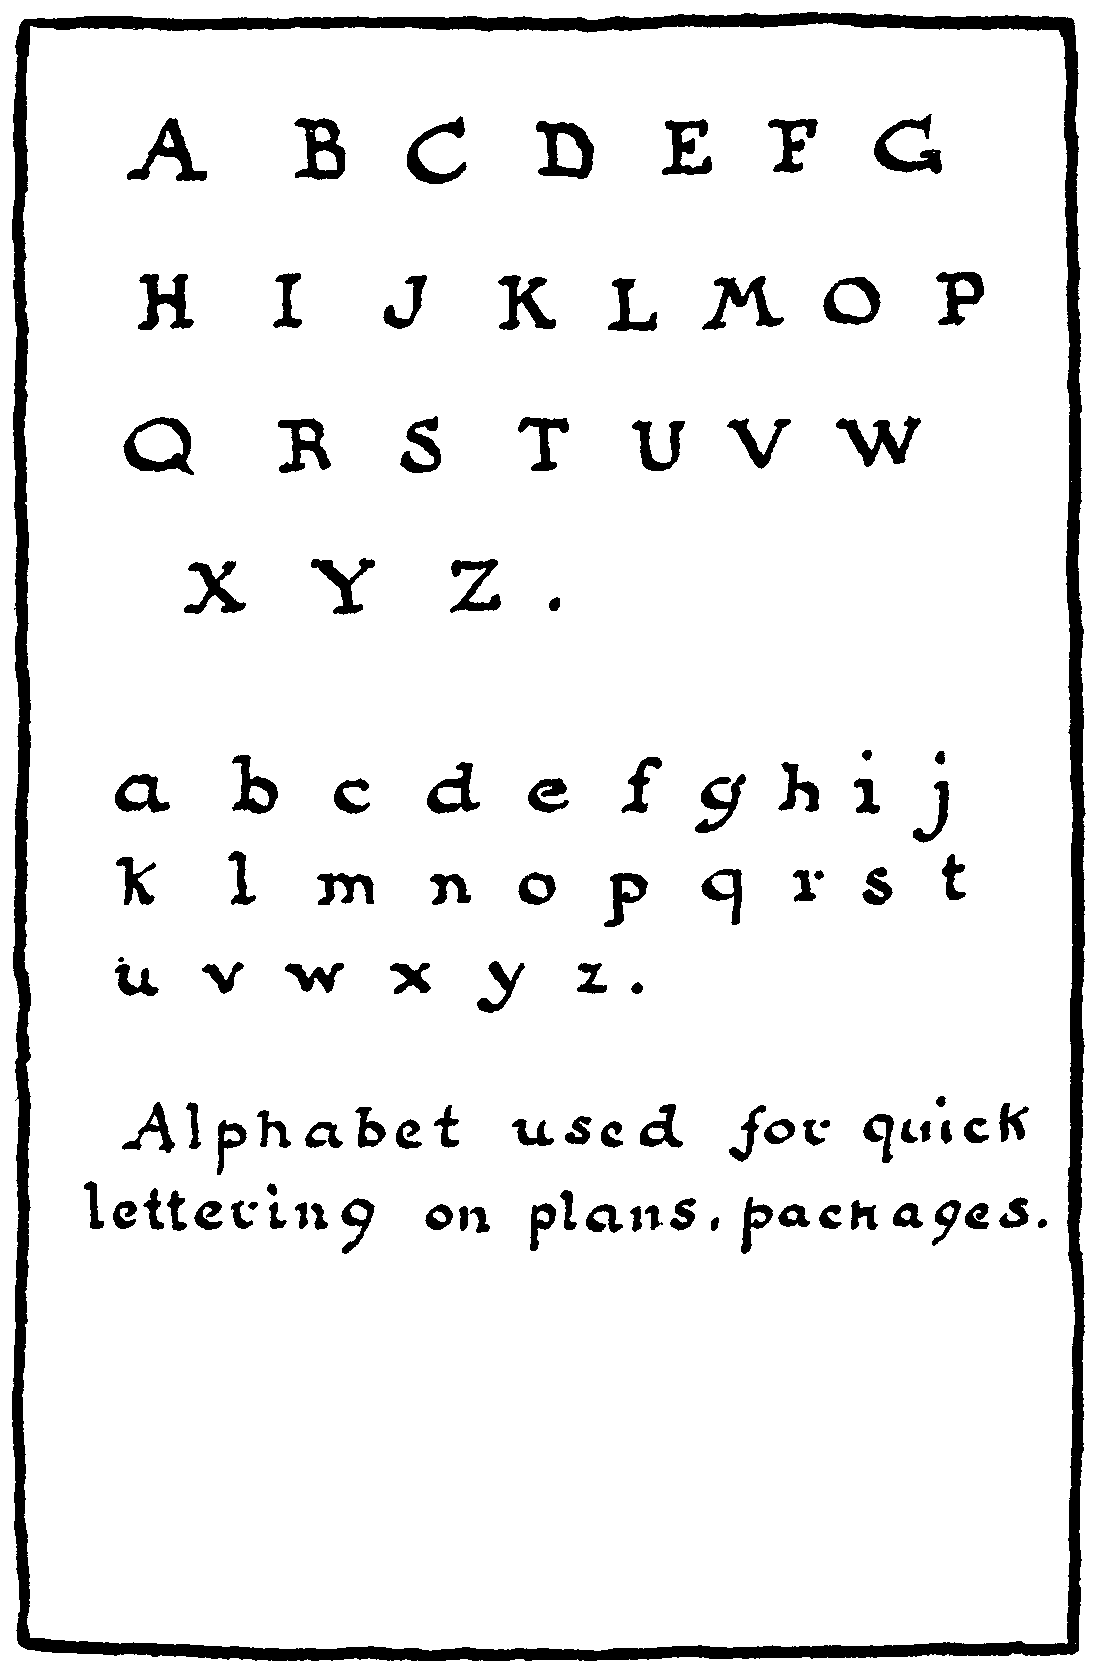 A B C D E F G
H I J K L M O P
Q R S T U V W
X Y Z .
a b c d e f g h i j
k l m n o p q r s t
u v w x y z .
Alphabet used for quick
lettering on plans, packages.